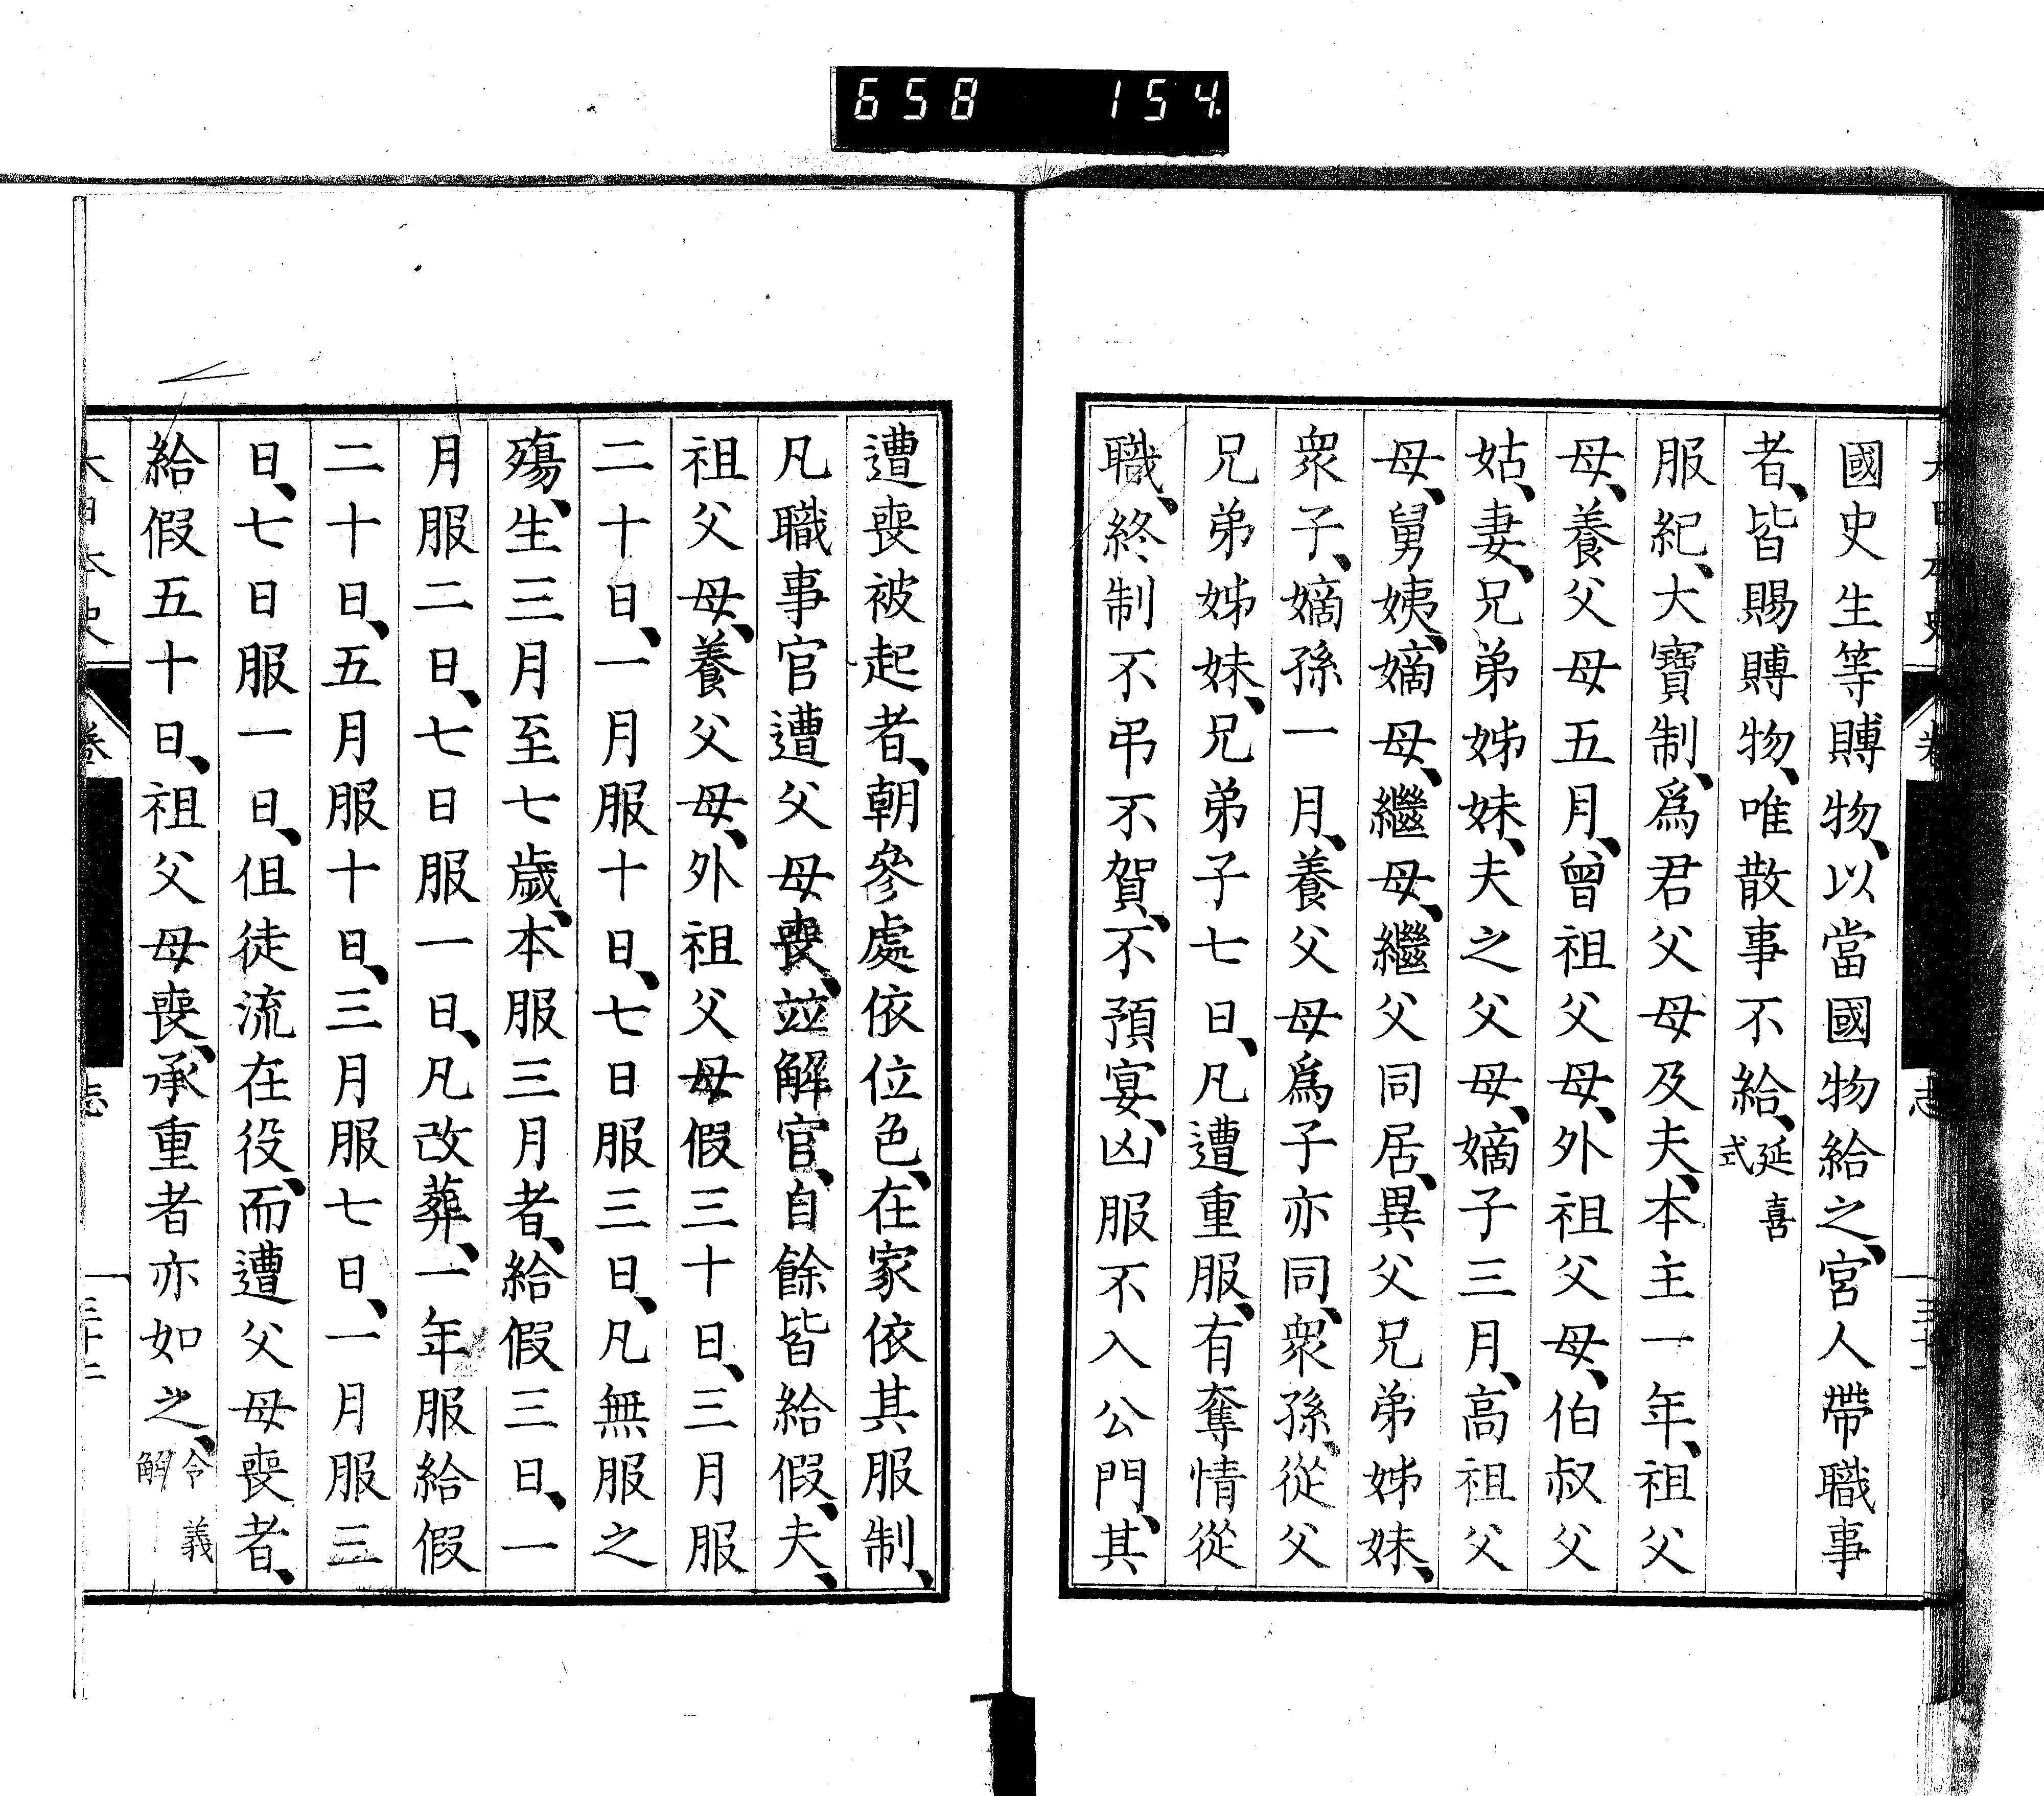 658 154
大日本史 卷 志 三十一
國史生等賻物、以當國物給之、宮人帶職事
者、皆賜賻物、唯散事不給、延喜式
服紀、大寶制、爲君父母及夫、本主一年、祖父
母、養父母五月、曾祖父母、外祖父母、伯叔父
姑、妻、兄弟姊妹、夫之父母、嫡子三月、高祖父
母、舅姨、嫡母、繼母、繼父同居、異父兄弟姊妹、
衆子、嫡孫一月、養父母爲子亦同、衆孫、從父
兄弟姊妹、兄弟子七日、凡遭重服、有奪情從
職、終制不弔不賀、不預宴、凶服不入公門、其
遭喪被起者、朝參處依位色、在家依其服制、
凡職事官遭父母喪、竝解官、自餘皆給假、夫、
祖父母、養父母、外祖父母假三十日、三月服
二十日、一月服十日、七日服三日、凡無服之
殤、生三月至七歲、本服三月者、給假三日、一
月服二日、七日服一日、凡改葬、一年服給假
二十日、五月服十日、三月服七日、一月服三
日、七日服一日、但徒流在役、而遭父母喪者、
給假五十日、祖父母喪、承重者亦如之、令義解
大日本史 卷 志 三十二